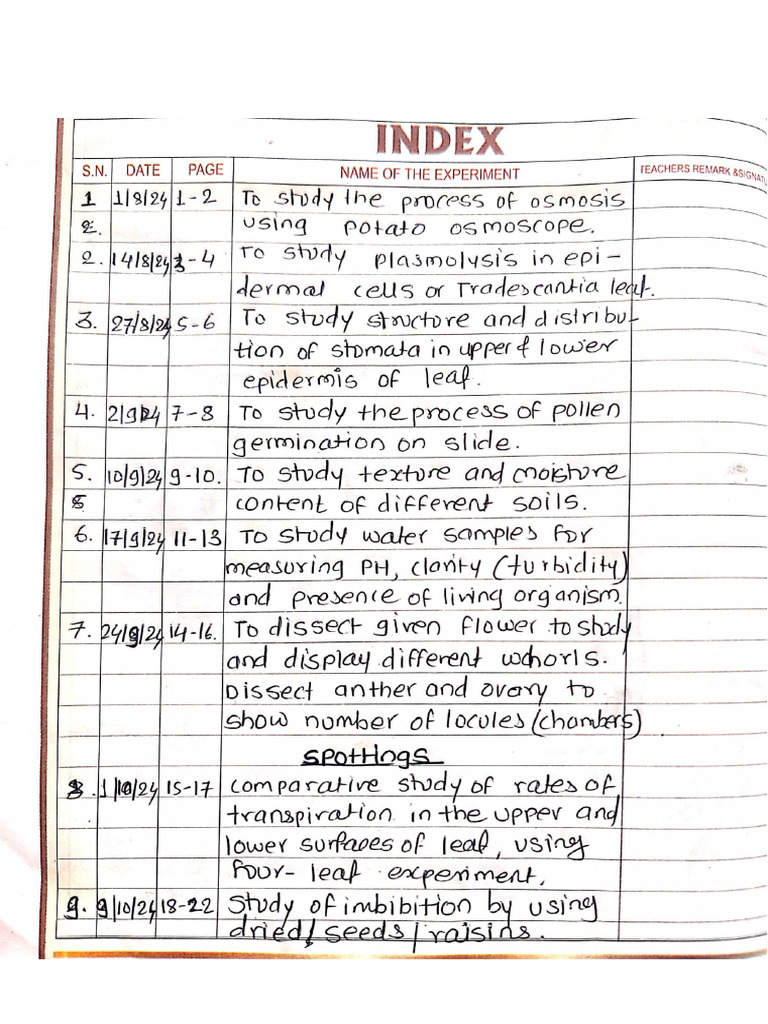 INDEX
S.N. DATE PAGE NAME OF THE EXPERIMENT TEACHERS REMARK & SIGNATU
1 1/8/24 1-2 To study the process of osmosis
2. using potato osmoscope.
2. 14/8/24 3-4 To study plasmolysis in epi-
dermal cells or Tradescantia leaf.
3. 27/8/24 5-6 To study structure and distribu-
tion of stomata in upper & lower
epidermis of leaf.
4. 2/9/24 7-8 To study the process of pollen
germination on slide.
5. 10/9/24 9-10. To study texture and moisture
5 content of different soils.
6. 17/9/24 11-13 To study water samples for
measuring PH, clarity (turbidity)
and presence of living organism.
7. 24/9/24 14-16. To dissect given flower to study
and display different whorls.
Dissect anther and ovary to
show number of locules (chambers)
Spottings
8. 1/10/24 15-17 comparative study of rates of
transpiration in the upper and
lower surfaces of leaf, using
four-leaf experiment,
9. 9/10/24 18-22 Study of imbibition by using
dried/seeds/raisins.